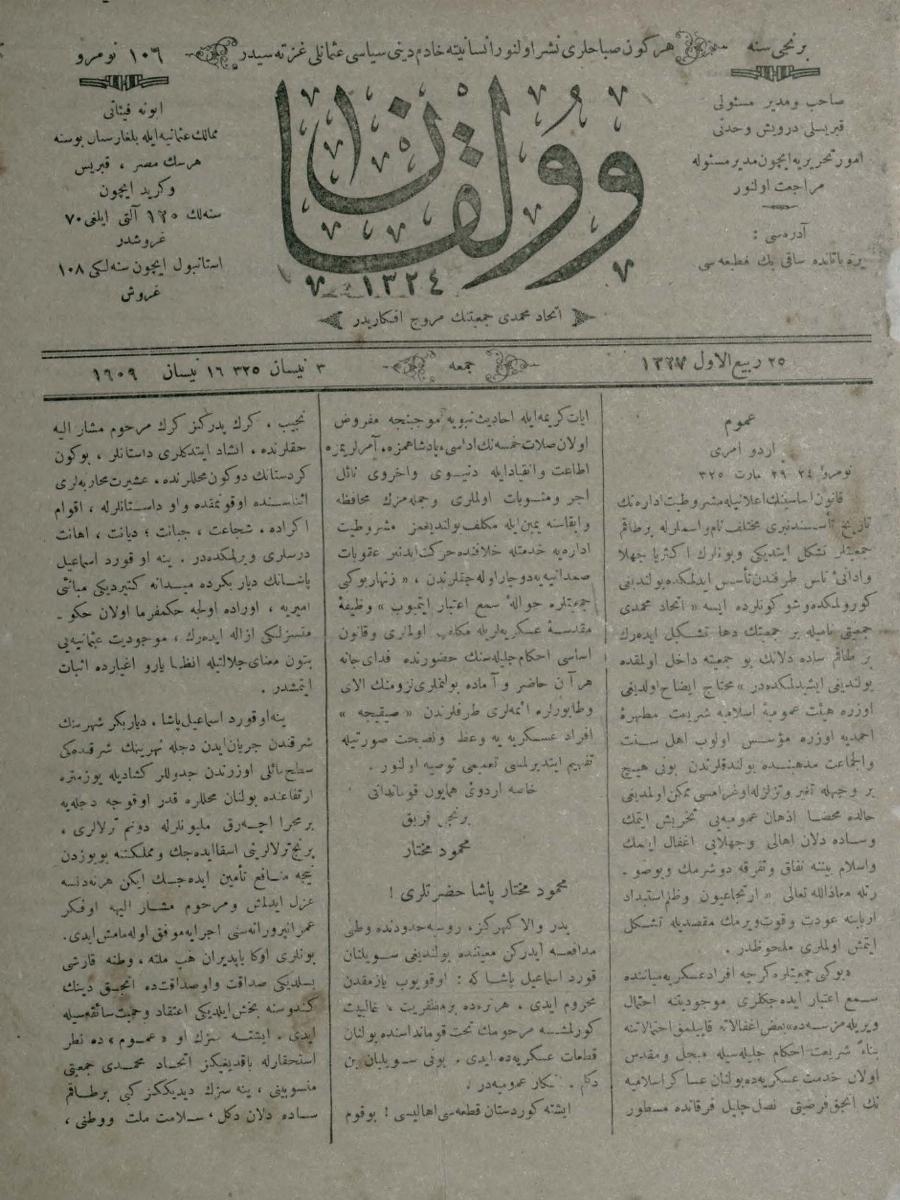 برنجى سنه
هر كون صباحلرى نشر اولنور انسانيته خادم دينى سياسى عثمانلى غزته سيدر
١٠٦ نومرو
صاحب و مدير مسئولى
قبريسلى درويش وحدتى
امور تحريريه ايچون مدير مسئوله
مراجعت اولنور
آدره سى :
يره باتانده ساقى بك قطعه سى
وولقان
١٣٢٤
اتحاد محمدى جمعيتنك مروج افكاريدر
ابونه فيئاتى
ممالك عثمانيه ايله بلغارستان بوسنه
هرسك مصر ، قبريس
وكريد ايچون
سنه لك ١٢٥ آلتى ايلغى ٧٠
غروشدر
استانبول ايچون سنه لكى ١٠٨
غروش
٢٥ ربيع الاول ١٣٢٧
جمعه
٣ نيسان ٣٢٥ ١٦ نيسان ١٩٠٩
عموم
اردو امرى
نومرو ٢٤ ٢٩ مارت ٣٢٥
قانون اساسينك اعلانيله مشروطيت اداره نك
تاريخ تأسسندنبرى مختلف نام و اسملرله برطاقم
جمعيتلر تشكل ايتديكى وبونلرك اكثريا جهلا
وادانئ ناس طرفندن تأسيس ايدلمكده بولنديغى
كورولمكده وشو كونلرده ايسه « اتحاد محمدى
جمعيتى ناميله بر جمعيتك دها تشكيل ايده رك
بر طاقم ساده دلانك بو جمعيته داخل اولمقده
بولنديغى ايشيدلمكده در » محتاج ايضاح اولديغى
اوزره هيئت عموميهٔ اسلاميه شريعت مطهرهٔ
احمديه اوزره مؤسس اولوب اهل سنت
والجماعت مذهبنده بولندقلرندن بونى هيچ
بر وجهله تغير وتزلزله اوغرامسى ممكن اولمديغى
حالده محضا اذهان عموميه يى تخريش ايتمك
وساده دلان اهالى وجهلايى اغفال ايتمك
واسلام بيننه نفاق وتفرقه دوشرمك وبوصو ـ
رتله معاذالله تعالى « ارتجاعيون وظلم استبداد
اربابنه عودت وقوت ويرمك مقصديله تشكل
ايتمش اولملرى ملحوظدر .
بوكى جمعيتلره كرچه افراد عسكريه ميانندە
سمع اعتبار ايده جكلرى موجوديتنه احتمال
ويريله مز سه ده بعض اغفالاته قاپيلمق احتمالاتنه
بناءً شريعت احكام جليله سيله مبجل ومقدس
اولان خدمت عسكريه ده بولنان عساكر اسلاميه
نك انجق فرضيتى نصل جليل فرقانده مسطور
ايات كريمه ايله احاديث نبويه موجبنجه مفروض
اولان صلات خمسه نك اداسى ، پادشاهمزه ، آمرلريمزه
اطاعت وانقياد ايله دنيوى واخروى نائل
اجر ومثوبات اولملرى وجمله مزك محافظه
وابقاسنه يمين ايله مكلف بولنديغمز مشروطيت
اداره يه خدمتله خلافنده حركت ايدنلر عقوبات
صمدانيه يه دوچار اوله جقلرندن ، « زنهار بوكى
جمعيتلره حوالهٔ سمع اعتبار ايتميوب » وظيفهٔ
مقدسهٔ عسكريه لريله مكلف اولملرى وقانون
اساسى احكام جليله سنك حضورنده فداى جانه
هر آن حاضر و آماده بولنملرى لزومنك الاى
وطابورلره ائمه لرى طرفلرندن « صيقيجه »
افراد عسكريه يه وعظ ونصحت صورتيله
تفهيم ايتديرلمسى تعميمى توصيه اولنور .
خاصه اردوى همايون قوماندانى
برنجى فريق
محمود مختار
محمود مختار پاشا حضرتلرى !
پدر والا كهركز ، روسيه حدودنده وطنى
مدافعه ايدركن معيتنده بولنديغى سويلنان
قورد اسماعيل پاشا كه : اوقويوب يازمقدن
محروم ايدى . هر نره ده بر مظفريت ، غالبيت
كورلمشسه مرحومك تحت قوماندا سنده بولنان
قطعات عسكريه ده ايدى . بونى سويليان بن
دكلم . افكار عموميه در .
ايشته كوردستان قطعه سى اهاليسى ! بوقوم
نجيب ، كرك پدركز كرك مرحوم مشار اليه
حقلرنده ، انشاد ايتدكلرى داستانلر ، بوكون
كردستانك دوكون محللرنده ، عشيرت محاربه لرى
اثناسنده اوقونمقده واو داستانلرله ، اقوام
اكراده ، شجاعت ، جبانت ؛ ديانت ، اهانت
درسلرى ويرلمكده در . ينه او قورد اسماعيل
پاشانك ديار بكرده ميدانه كتيرديكى مبانئ
اميريه ، اوراده اولجه حكمفرما اولان حكو ـ
متسزلكى ازاله ايده رك ، موجوديت عثمانيه يى
بتون معناى جلالتيله انظار يارو اغيارده اثبات
ايتمشدر .
ينه او قورد اسماعيل پاشا ، ديار بكر شهرينك
شرقندن جريان ايدن دجله نهرينك شرقنده كى
سطح مائلى اوزرندن جدوللر كشاديله يوز متره
ارتفاعنده بولنان محللره قدر اوقوجه دجله يه
بر مجرا آچه رق مليونلرله دونم ترلالرى ،
پرنج ترلالرينى اسقا ايده جك ومملكتنه بو يوزدن
نيجه منافع تأمين ايده جك ايكن هر نه دنسه
عزل ايدلمش ومرحوم مشار اليه او فكر
عمرانپرورانه سنى اجرايه موفق اوله مامش ايدى .
بونلرى اوكا ياپديران هپ ملته ، وطنه قارشى
بسلديكى صداقت واو صداقت ده انجق دينك
كندوسنه بخش ايلديكى اعتقاد وحميت سائقه سيله
ايدى . ايشته سزك او « عموم » ده نظر
استحقارله باقديغكز اتحاد محمدى جمعيتى
منسوبينى ، ينه سزك ديديككز كبى برطاقم
ساده دلان دكل ، سلامت ملت ووطنى ،